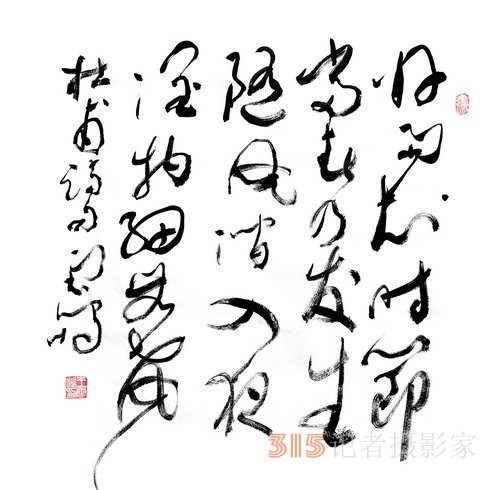 好雨知时节
当春乃发生
随风潜入夜
润物细无声
杜甫诗句
315记者摄影家